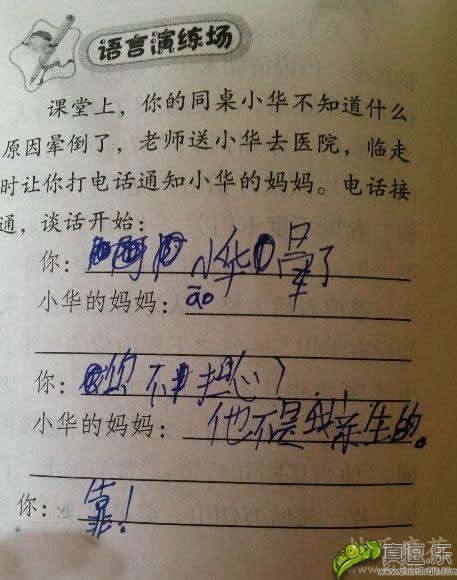 语言演练场
课堂上，你的同桌小华不知道什么
原因晕倒了，老师送小华去医院，临走
时让你打电话通知小华的妈妈。电话接
通，谈话开始：
你：小华晕了
小华的妈妈：āo
你：你不担心？
小华的妈妈：他不是我亲生的。
你：靠！
真逗乐
www.zhendoule.com